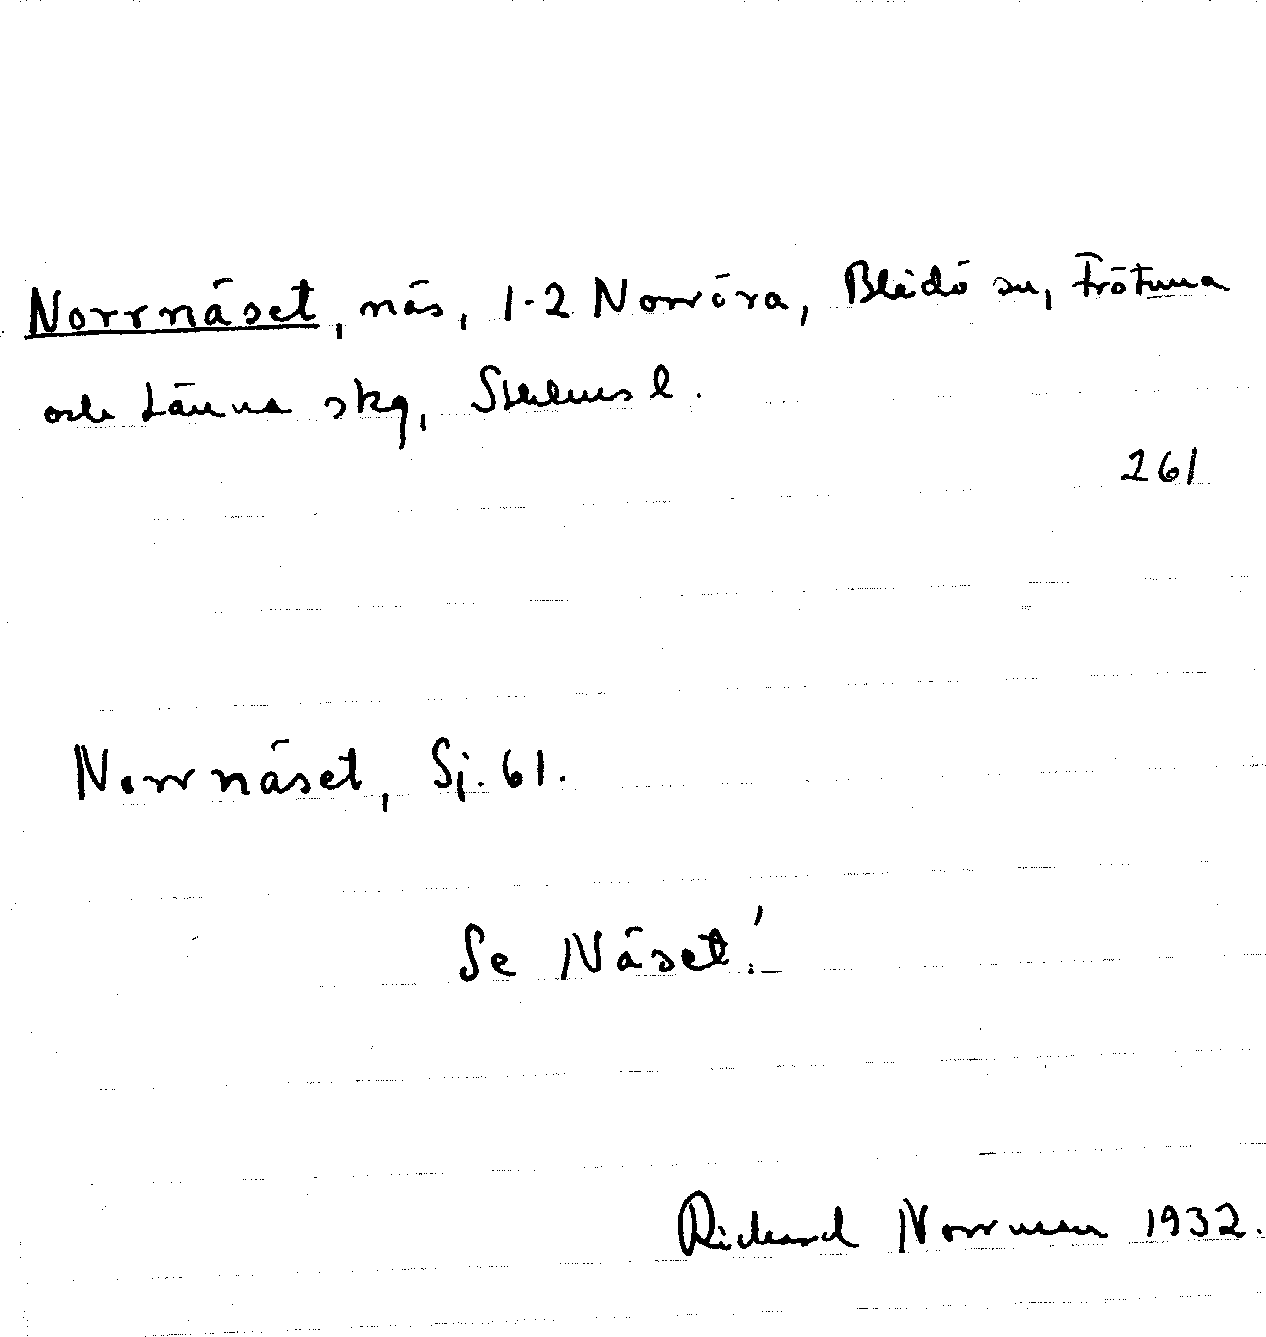 Norrnäset, näs, 1-2 Norröra, Blidö sn, Frötuna
och Länna skg, Sthlms l.
261
Norrnäset, Sj. 61.
Se Näset!
Rickard Norrman 1932.